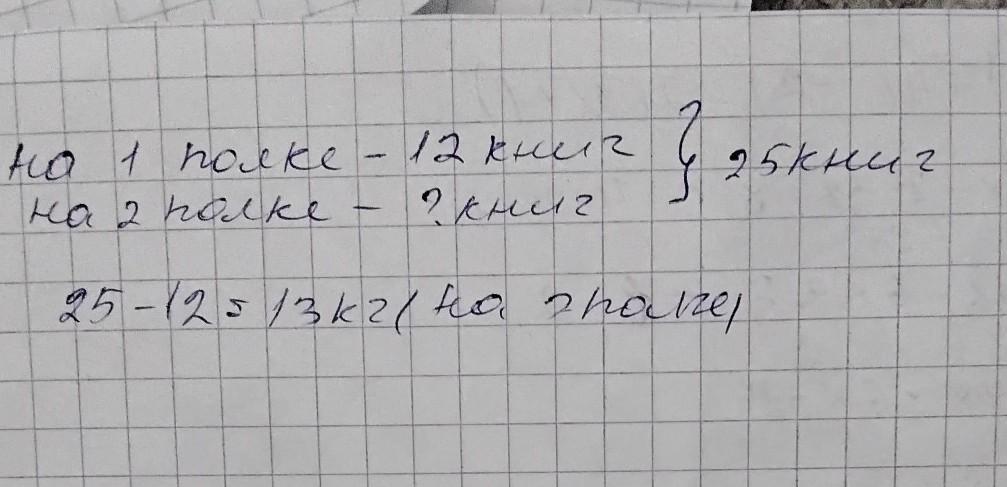 на 1 полке - 12 книг } 25 книг
на 2 полке - ? книг
25 - 12 = 13 кг ( на 2 полке)